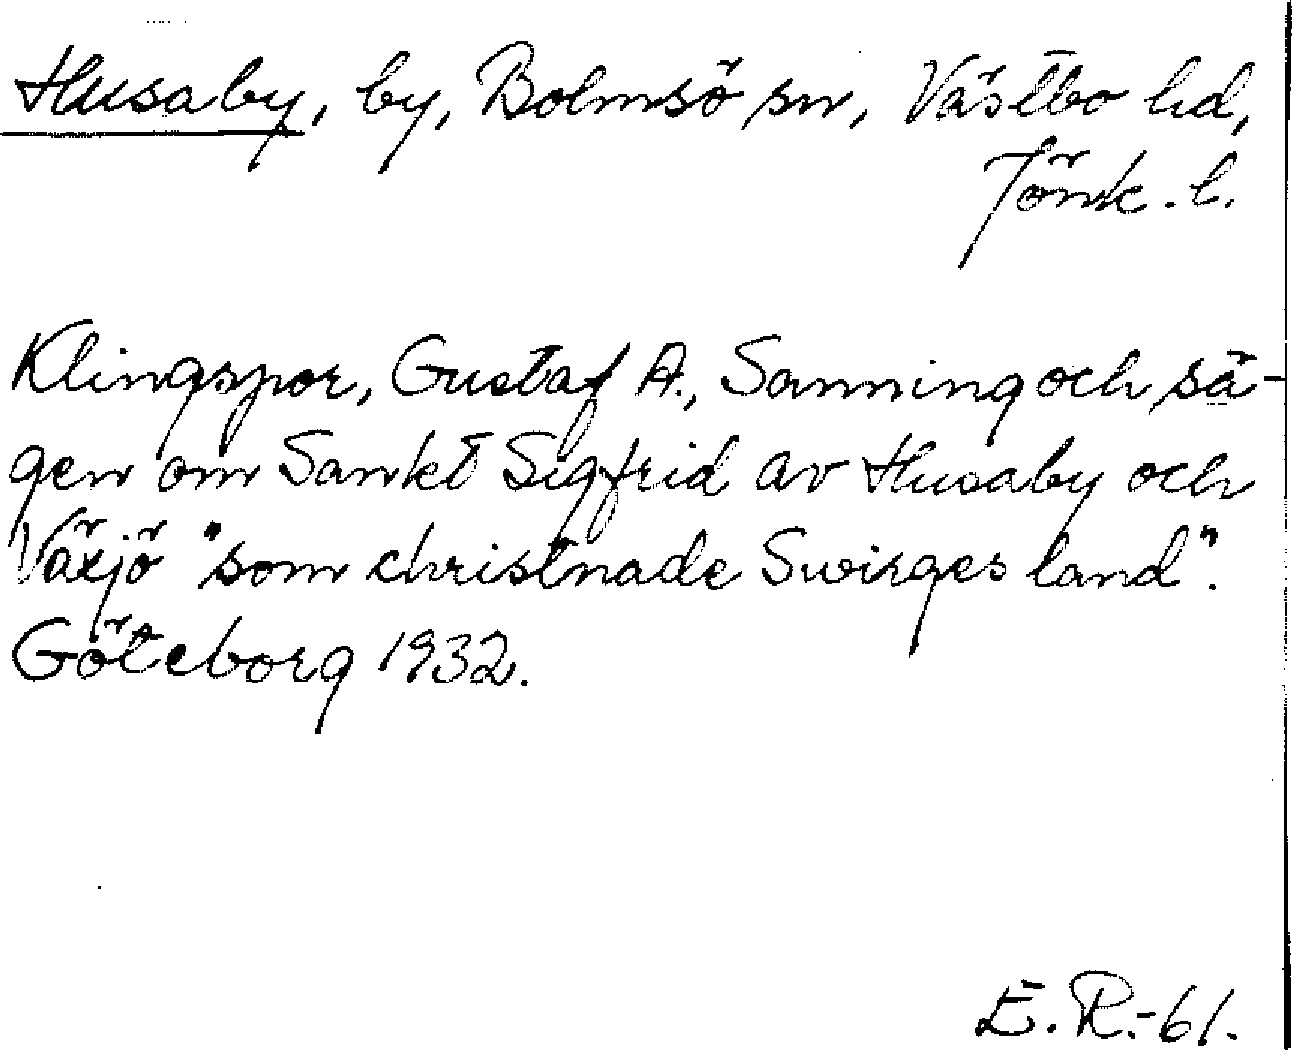 Husaby, by, Bolmsö sn, Västbo hd,
Jönk. l.
Klingspor, Gustaf A., Sanning och sä-
gen om Sankt Sigfrid av Husaby och
Växjö "som christnade Swirges land".
Göteborg 1932.
E. R.-61.